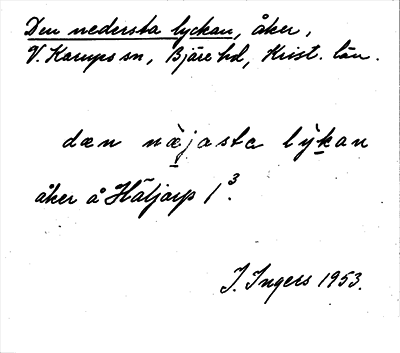 Den nedersta lyckan, åker,
V. Karups sn, Bjäre hd, Krist. län.
dæn næjasta lỳkan
åker å Häljarp 1³.
I. Ingers 1953.